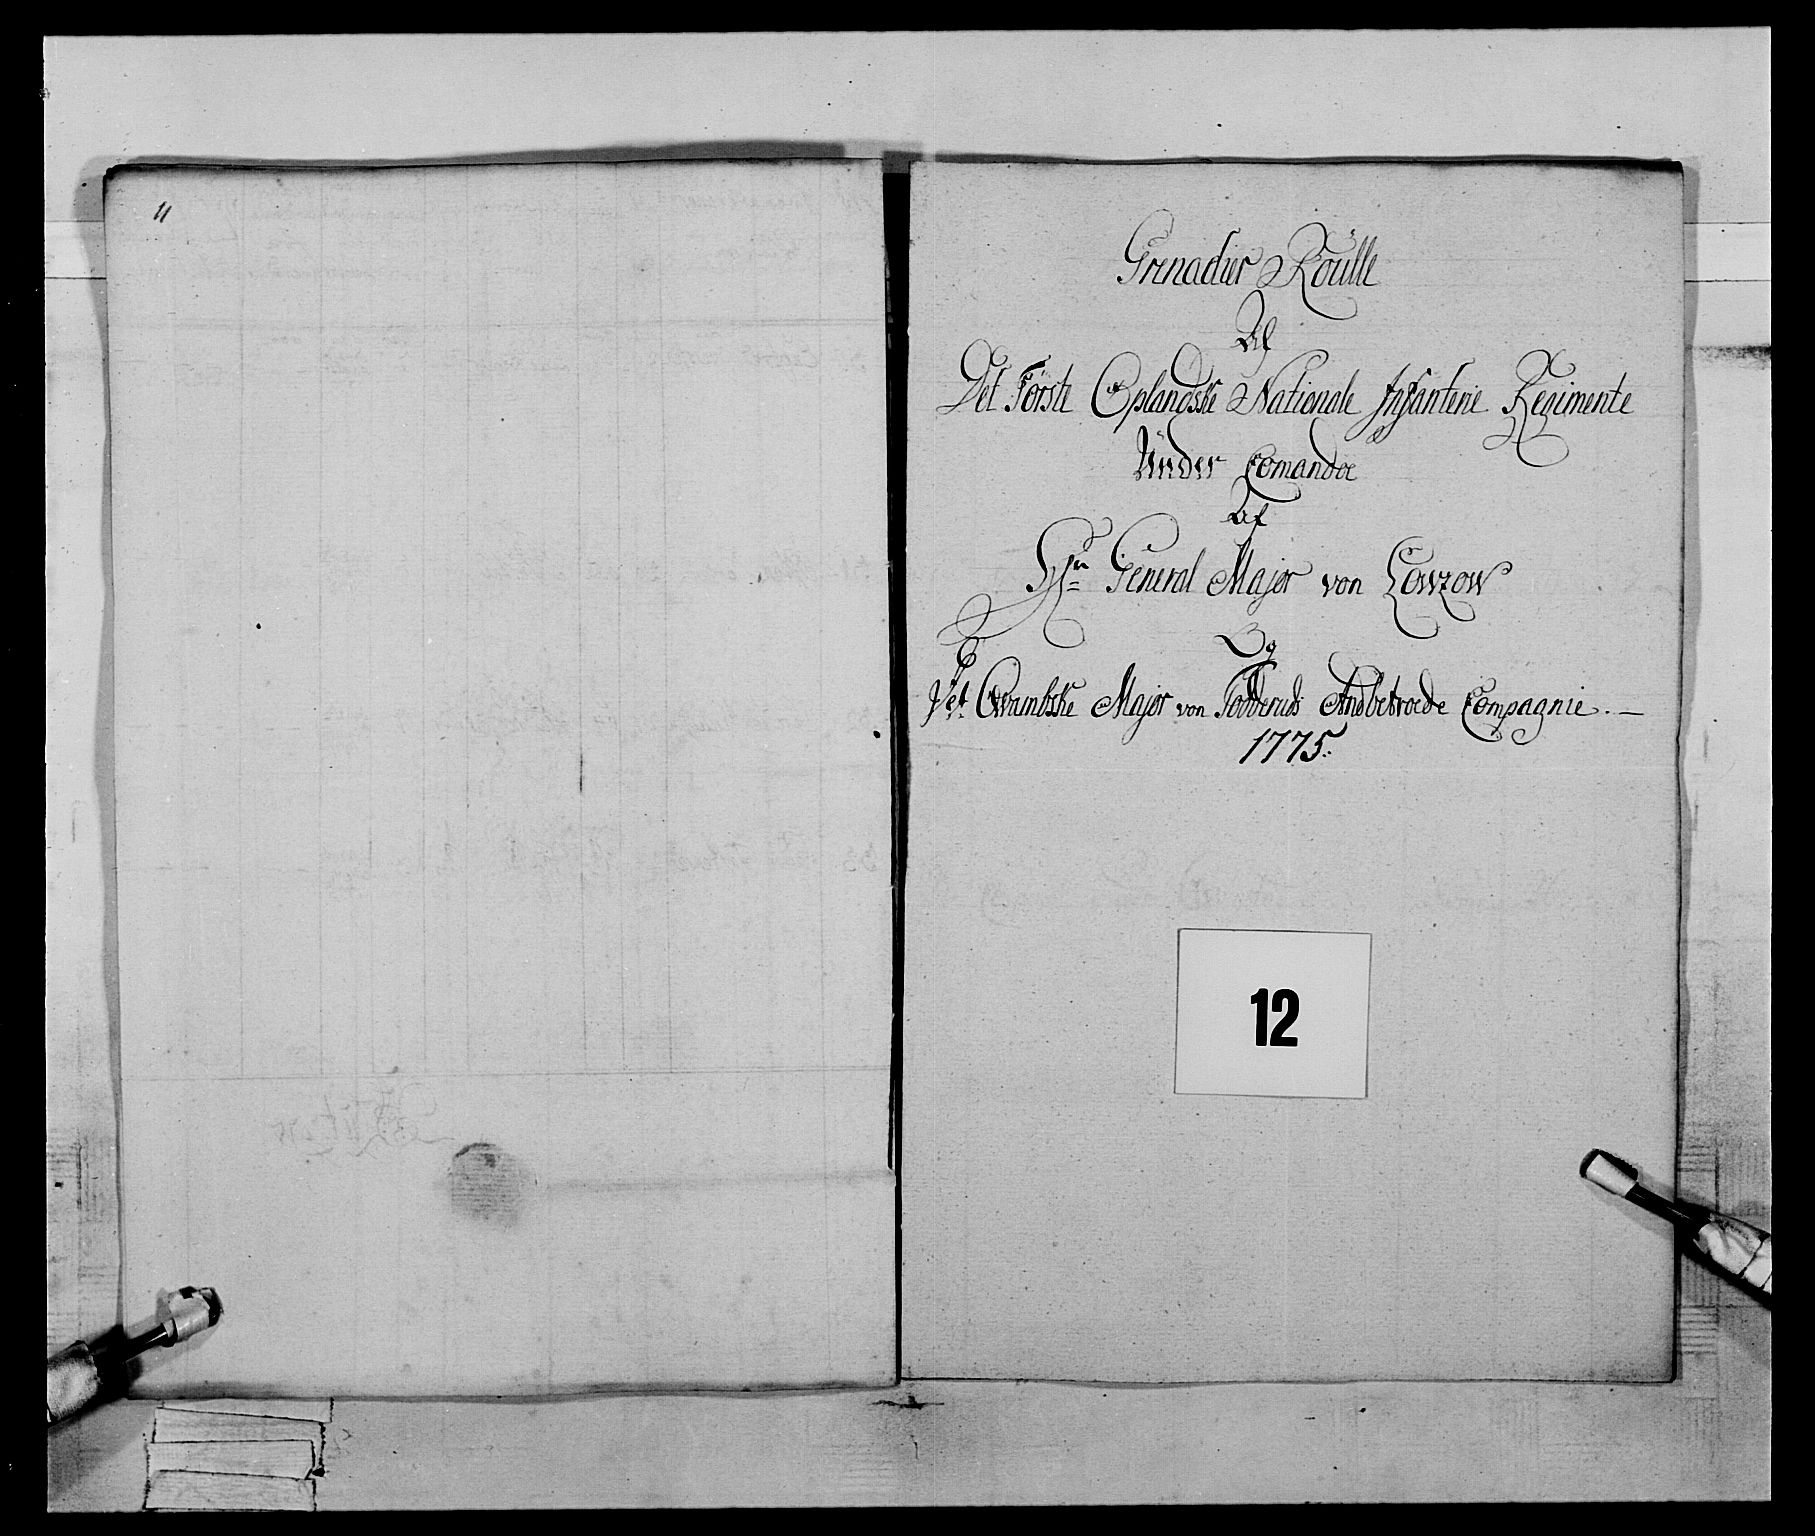 11
Grenadier Roulle
Af
Det Förste Oplandske Nationale Infanterie Regimente
Under Comando
Af
Hr General Major von Lowzow
Og
Ved Major von Andbetroede Compagnie.
1775.
12